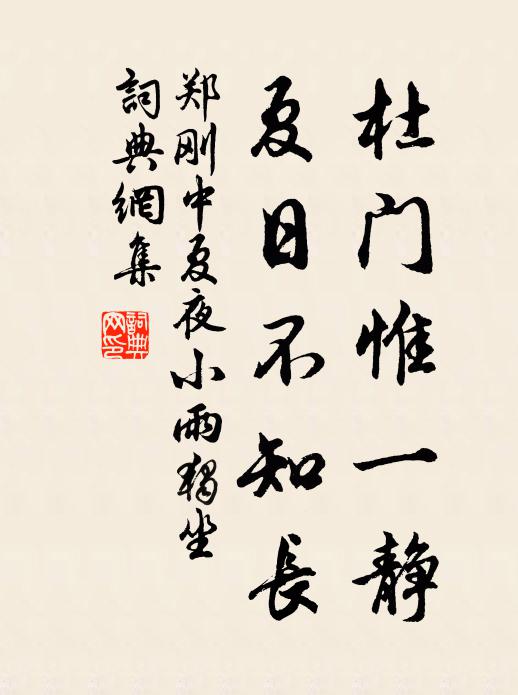 杜门惟一静
夏日不知長
郑刚中夏夜小雨獨坐
詞典網集
詞典网印